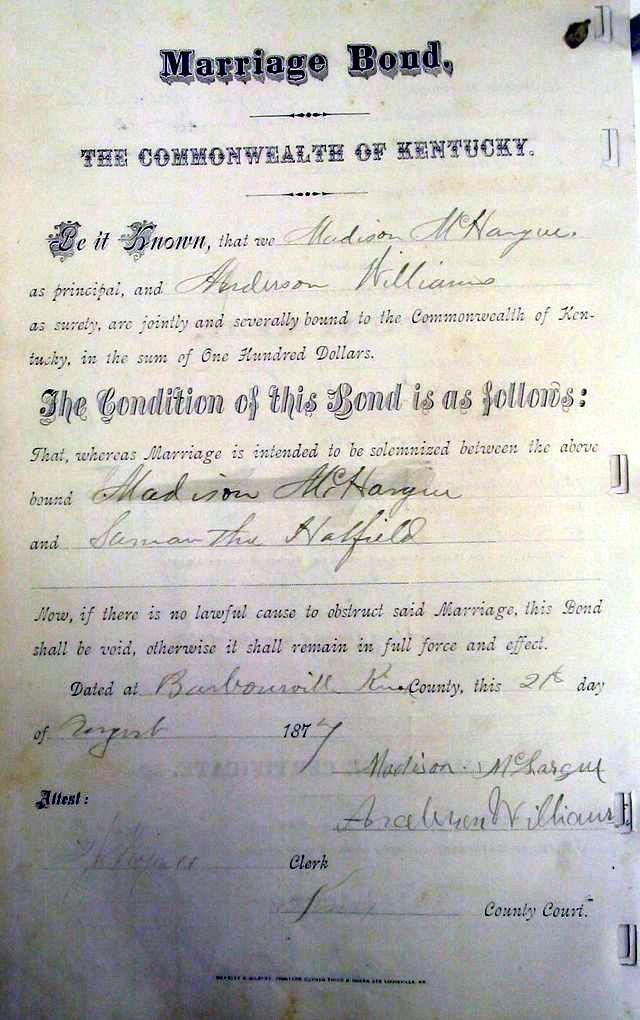 Marriage Bond.
THE COMMONWEALTH OF KENTUCKY.
Be it Known, that we Madison McHargue.
as principal, and Anderson Williams
as surety, are jointly and severally bound to the Commonwealth of Ken-
tucky, in the sum of One Hundred Dollars.
The Condition of this Bond is as follows:
That, whereas Marriage is intended to be solemnized between the above
bound Madison McHargue
and Samantha Hatfield
Now, if there is no lawful cause to obstruct said Marriage, this Bond
shall be void, otherwise it shall remain in full force and effect.
Dated at Barboursvill Knox County, this 21st day
of August 1877
Madison McHargue
Attest:
Anderson Williams
Clerk
County Court.